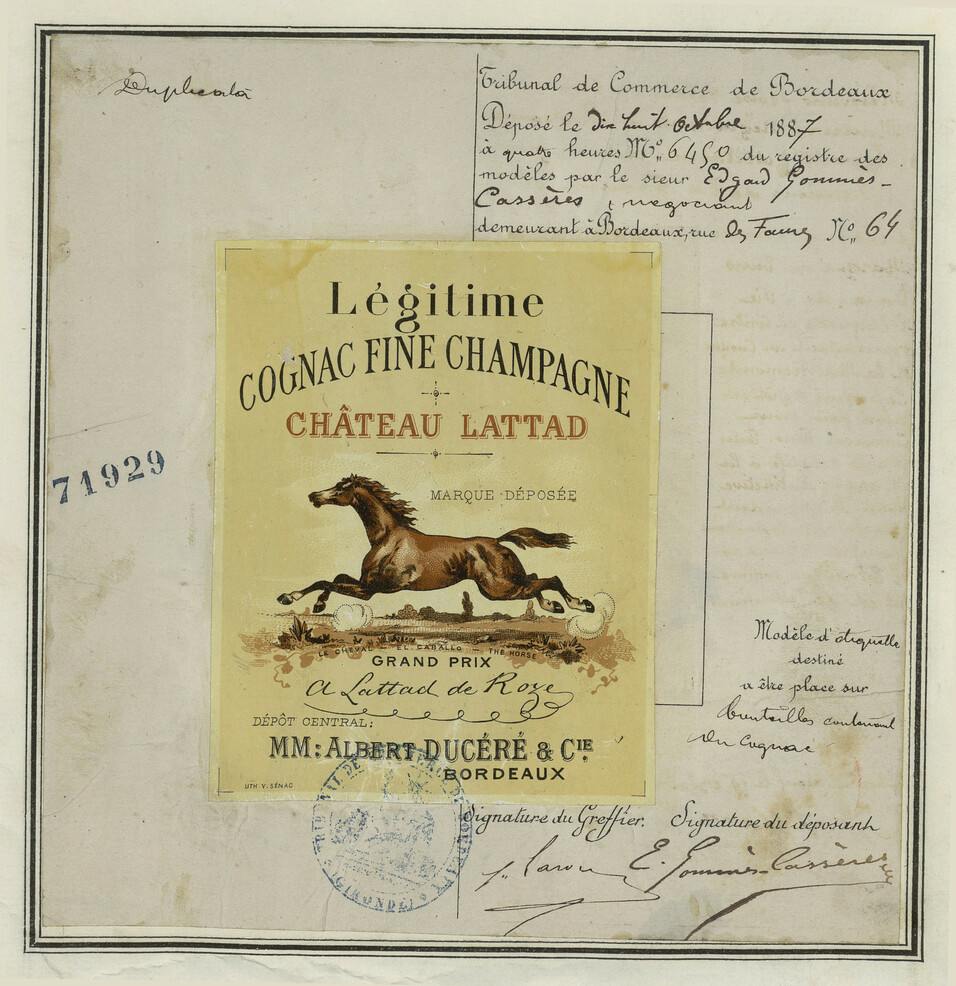 Duplicata
Tribunal de Commerce de Bordeaux
Déposé le dix huit Octobre 1887
à quatre heures Nº 6450 du registre des
modèles par le sieur Edgard Gommès-
Cassères, negociant
demeurant à Bordeaux, rue des Faures Nº 64
Légitime
COGNAC FINE CHAMPAGNE
CHÂTEAU LATTAD
MARQUE DÉPOSÉE
LE CHEVAL - EL CABALLO - THE HORSE
GRAND PRIX
A Lattad de Roze
DÉPÔT CENTRAL:
MM: ALBERT DUCÉRÉ & CIE
BORDEAUX
LITH V. SÉNAC
71929
Modèle d'étiquette
destiné
a être place sur
bouteilles contenant
du Cognac
TRIBUNAL DE COMMERCE DE BORDEAUX
(GIRONDE)
Signature du Greffier. Signature du déposant
E. Gommès-Cassères